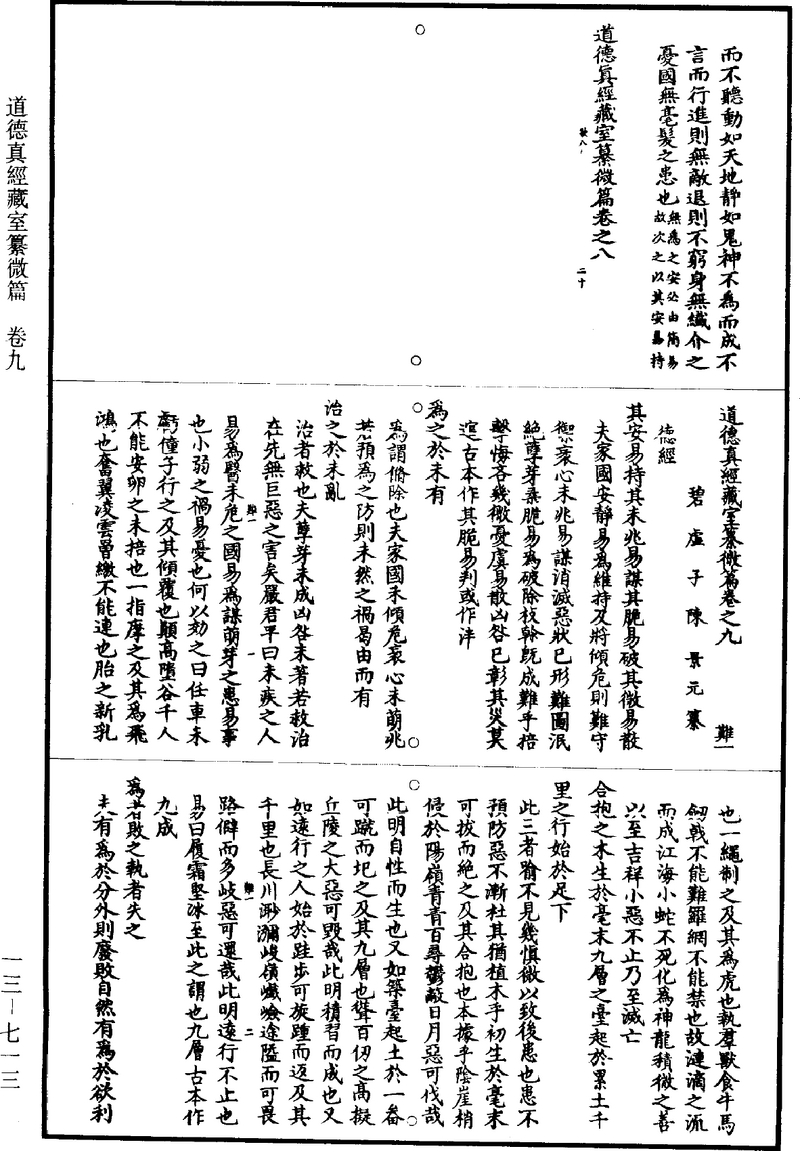 道德真經藏室纂微篇 卷九
而不聽動如天地靜如鬼神不為而成不
言而行進則無敵退則不窮身無纖介之
憂國無毫髮之患也無為之安必由簡易故次之以其安易持
道德真經藏室纂微篇卷之八
二十
道德真經藏室纂微篇卷之九
難一
碧虛子陳景元纂
德經
其安易持其未兆易謀其脆易破其微易散
夫家國安靜易為維持及將傾危則難守
禦衰心未兆易謀消滅惡狀已形難圖泯
絕孽芽柔脆易為破除枝幹既成難乎掊
擊悔吝幾微憂虞易散凶咎已彰其災莫
逭古本作其脆易判或作泮
為之於未有
為謂脩除也夫家國未傾危衰心未萌兆
若預為之防則未然之禍曷由而有
治之於未亂
治者救也夫孽芽未成凶咎未著若救治
在先無巨惡之害矣嚴君平曰未疾之人
易為醫未危之國易為謀萌芽之患易事
難一
一
也小弱之禍易憂也何以効之曰任車未
虧僮子行之及其傾覆也顛高墮谷千人
不能安卵之未掊也一指摩之及其為飛
鴻也奮翼淩雲罾繳不能連也胎之新乳
也一繩制之及其為虎也執羣獸食牛馬
劒戟不能難羅網不能禁也故漣滴之流
而成江海小蛇不死化為神龍積微之善
以至吉祥小惡不止乃至滅亡
合抱之木生於毫末九層之臺起於累土千
里之行始於足下
此三者喻不見幾慎微以致後患也患不
預防惡不漸杜其猶植木乎初生於毫末
可拔而絕之及其合抱也本據乎陰崖梢
侵於陽嶺青青百尋鬱蔽日月惡可伐哉
此明自性而生也又如築臺起土於一畚
可蹴而圮之及其九層也聳百仞之高擬
丘陵之大惡可毀哉此明積習而成也又
如遠行之人始於跬步可旋踵而返及其
千里也長川渺瀰峻嶺巇嶮途隘而可畏
路僻而多歧惡可還哉此明遠行不止也
難一
二
易曰履霜堅冰至此之謂也九層古本作
九成
為者敗之執者失之
夫有為於分外則廢敗自然有為於欲利
一三—七一三